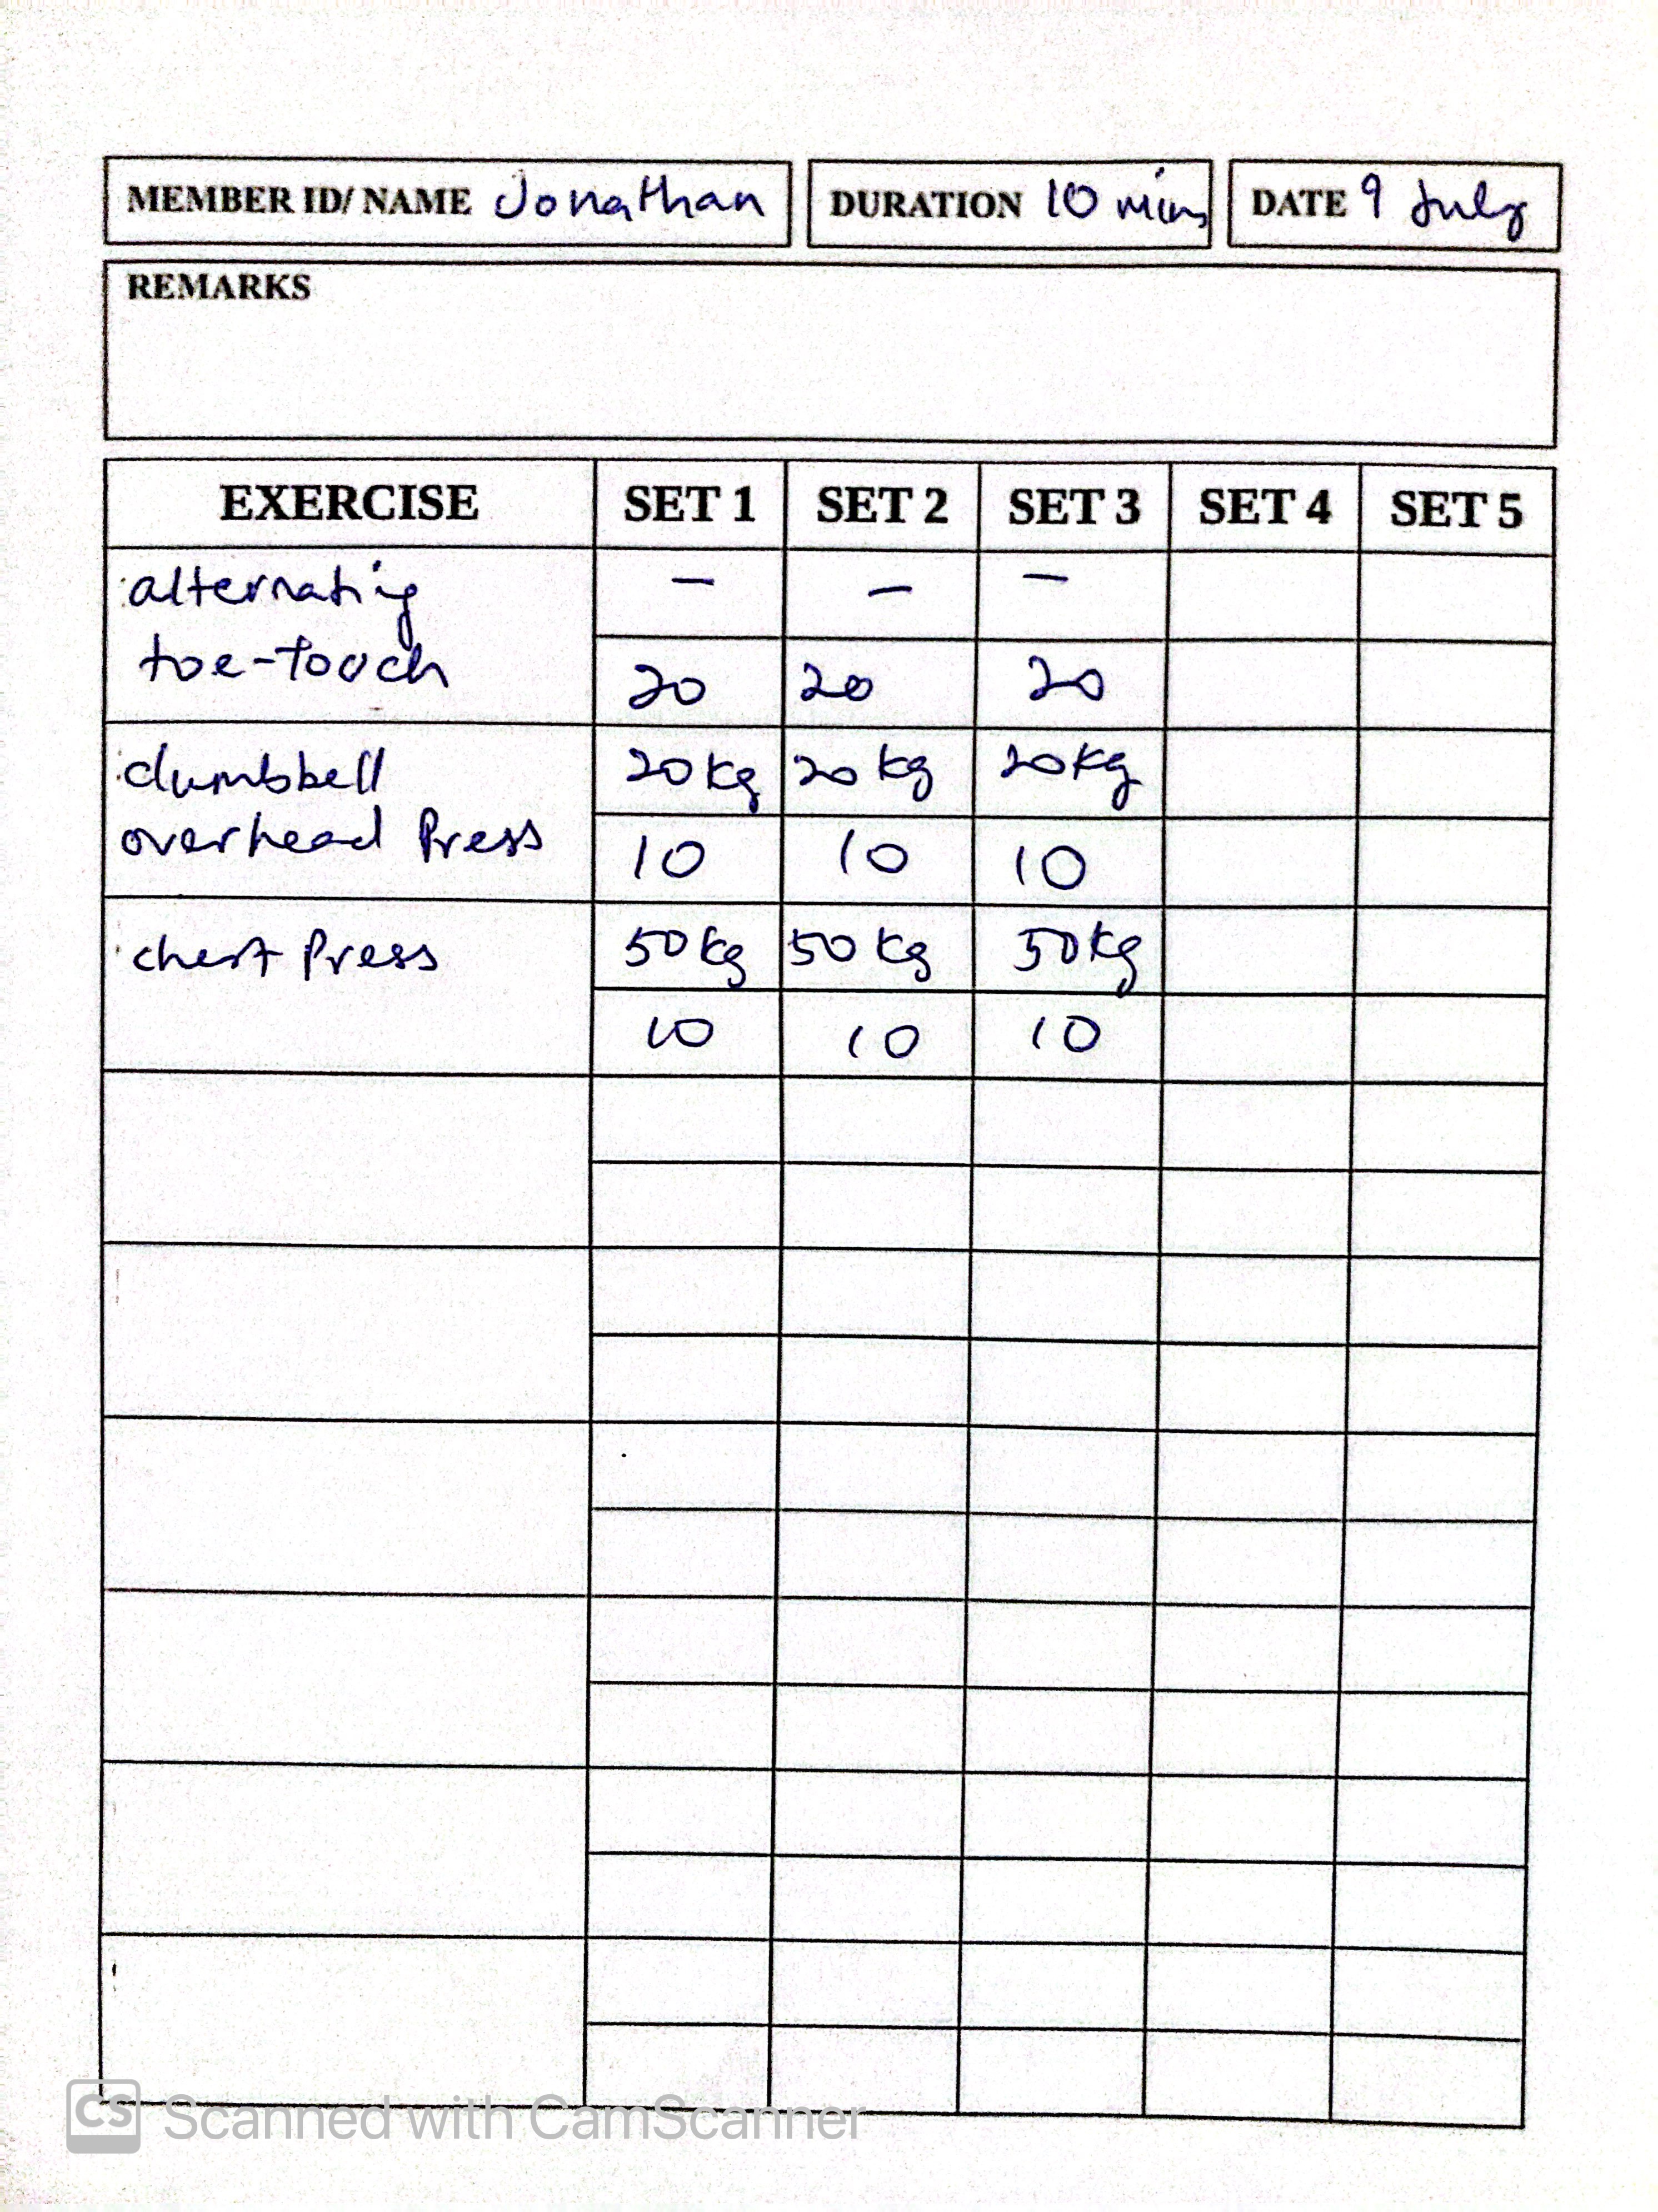 MEMBER ID/ NAME Jonathan DURATION 10 mins DATE 9 July
REMARKS
EXERCISE SET 1 SET 2 SET 3 SET 4 SET 5
alternating – – –
toe-touch 20 20 20
dumbbell 20kg 20kg 20kg
overhead Press 10 10 10
chest Press 50kg 50kg 50kg
10 10 10
CS Scanned with CamScanner